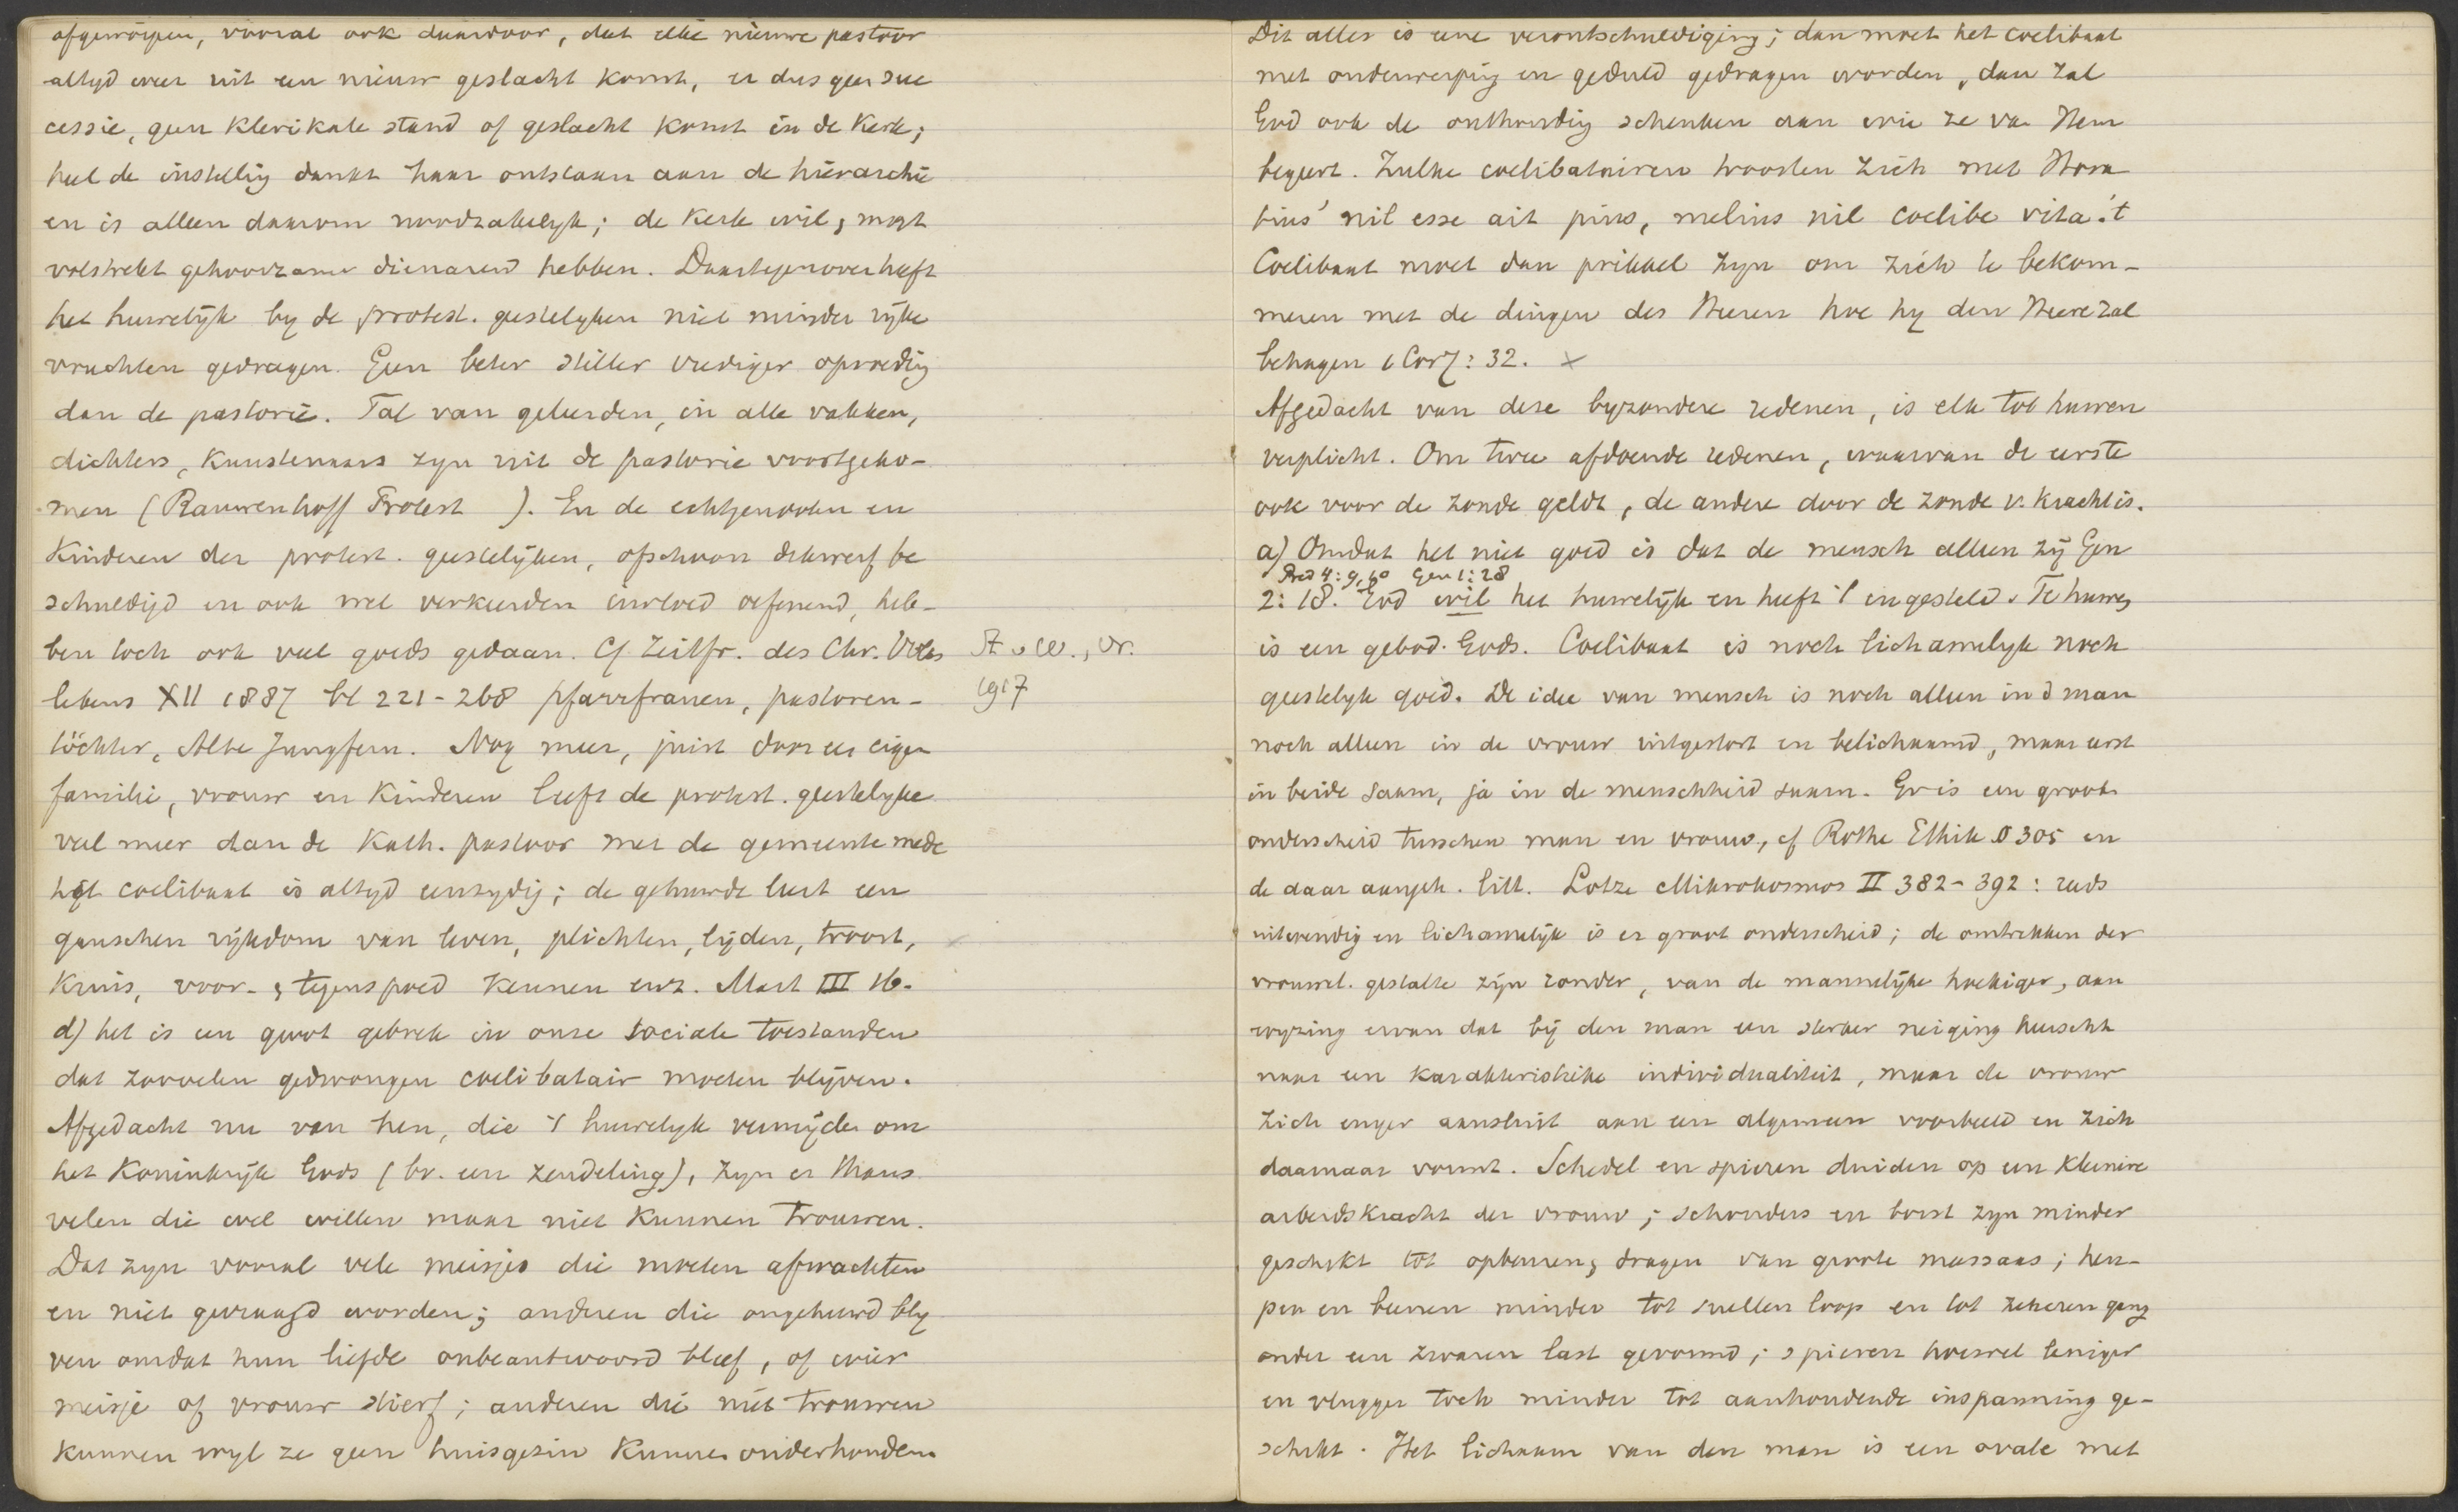 afgeworpen, vooral ook daardoor, dat elke nieuwe pastoor
altyd weer uit een nieuw geslacht komt, er dus geen suc
cessie, geen klerikale stand of geslacht komt in de kerk;
heel de instellig dankt haar ontstaan aan de hierarchie
en is alleen daarom noodzakelyk; de kerk wil, mogt
volstrekt gehoorzame dienaren hebben. Daartegenover heeft
het huwelijk by de protest. geestelyken niet minder rijke
vruchten gedragen. Geen beter stiller vrediger opvoedig
dan de pastorie. Tal van geleerden, in alle vakken,
dichters, kunstenaars zyn uit de pastorie voortgeko-
men (Rauwenhoff Protest ). En de echtgenooten en
kinderen der protest. geestelijken, ofschoon dikwerf be
schuldigd en ook wel verkeerden invloed oefenend, heb-
ben toch ook veel goeds gedaan. Cf Zeitfr. des Chr. Volks
lebens XII 1887 bl 221-268 Pfarrfrauen, pastoren-
töchter, Alte Jungfern. Nog meer, juist door een eigen
familie, vrouw en kinderen leeft de protest. geestelyke
veel meer dan de Kath. pastoor met de gemeente mede
het coelibaat is altyd eenzydig; de gehuwde leert een
ganschen rijkdom van leven, plichten, lijden, troost,
kruis, voor- , tegenspoed kennen enz. Mart III 16.
d) het is een groot gebrek in onze sociale toestanden
dat zoovelen gedwongen coelibatair moeten blijven.
Afgedacht nu van hen, die 't huwelyk vermijden om
het Koninkrijk Gods (bv. een zendeling), zyn er thans
velen die wel willen maar niet kunnen trouwen.
Dat zyn vooral vele meisjes die moeten afwachten
en niet gevraagd worden; anderen die ongehuwd bly
ven omdat hun liefde onbeantwoord bleef, of wier
meisje of vrouw stierf; anderen die niet trouwen
kunnen wyl ze geen huisgezin kunnen onderhouden
St. v W., Vr.
1917
Dit alles is eene verontschuldiging; dan moet het coelibaat
met onderwerping en geduld gedragen worden, dan zal
God ook de onthoudig schenken aan wie ze van Hem
begeert. Zulke coelibatairen troosten zich met Hora
tius' nil esse ait prius, melius nil coelibe vita. 't
Coelibaat moet dan prikkel zyn om zich te bekom-
meren met de dingen des Heeren hoe hy den Heere zal
behagen 1 Cor 7: 32. ×
Afgedacht van deze byzondere redenen, is elk tot huwen
verplicht. Om twee afdoende redenen, waarvan de eerste
ook voor de zonde geldt, de andere door de zonde v. kracht is.
a) Omdat het niet goed is dat de mensch alleen zij Gen
Pred 4: 9, 10 Gen 1: 28
2: 18. God wil het huwelijk en heeft 't ingesteld. Te huwen
is een gebod Gods. Coelibaat is noch lichamelyk noch
geestelyk goed. De idee van mensch is noch alleen in d man
noch alleen in de vrouw uitgestort en belichaamd, maar eerst
in beide saam, ja in de menschheid saam. Er is een groot
onderscheid tusschen man en vrouw, cf Rothe Ethik § 305 en
de daar aangeh. litt. Lotze Mikrokosmos II 382-392: reeds
uitwendig en lichamelijk is er groot onderscheid; de omtrekken der
vrouwel. gestalte zijn ronder, van de mannelijke hoekiger, aan
wyzing ervan dat bij den man een sterker neiging heerscht
naar een karakteristieke individualiteit, maar de vrouw
zich enger aansluit aan een algemeen voorbeeld en zich
daarnaar vormt. Schedel en spieren duiden op een kleinere
arbeidskracht der vrouw; schouders en borst zyn minder
geschikt tot opbeuren, dragen van groote massaas; heu-
pen en beenen minder tot snellen loop en tot zekeren gang
onder een zwaren last gevormd; spieren hoewel leniger
en vlugger toch minder tot aanhoudende inspanning ge-
schikt. Het lichaam van den man is een ovale met